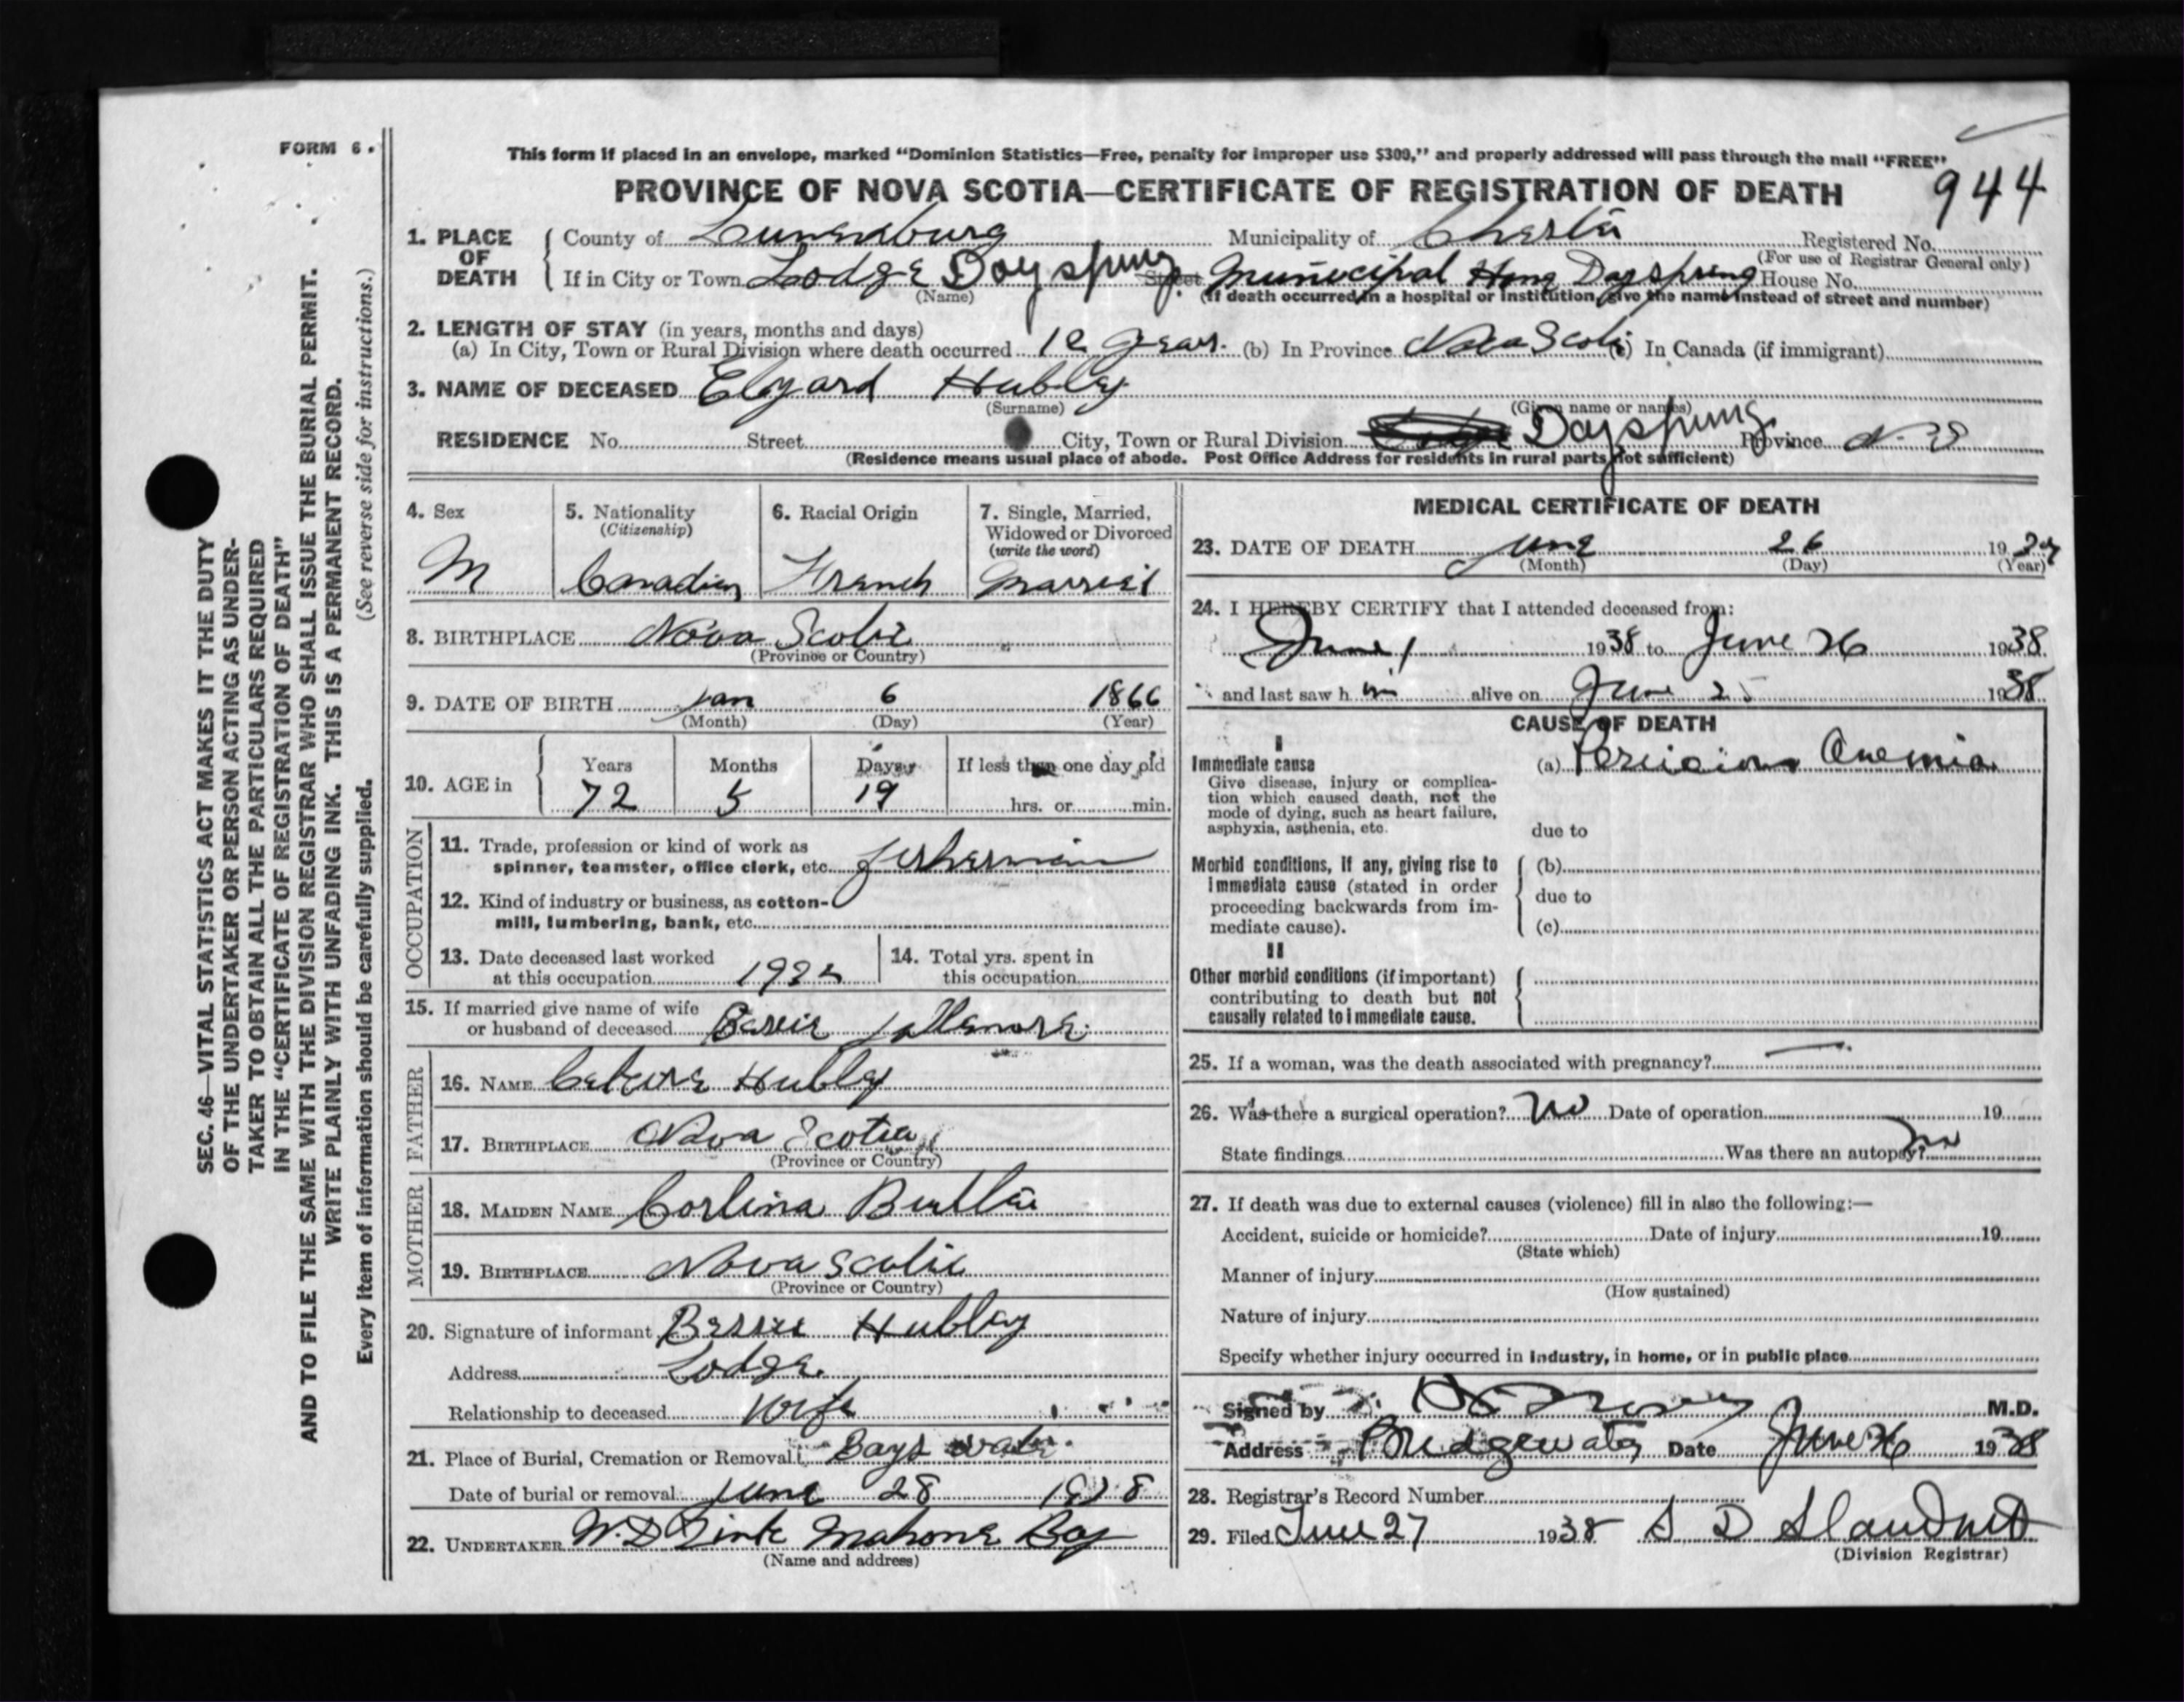 FORM 6.
This form if placed in an envelope, marked "Dominion Statistics—Free, penalty for improper use $300," and properly addressed will pass through the mail "FREE"
PROVINCE OF NOVA SCOTIA—CERTIFICATE OF REGISTRATION OF DEATH
944
1. PLACE OF DEATH County of Lunenburg Municipality of Chester Registered No.
(For use of Registrar General only)
If in City or Town Lodge Dayspring Street Municipal Home Dayspring House No.
(Name) (If death occurred in a hospital or institution, give the name instead of street and number)
2. LENGTH OF STAY (in years, months and days)
(a) In City, Town or Rural Division where death occurred years. (b) In Province Nova Scotia (c) In Canada (if immigrant)
3. NAME OF DECEASED Elzard Hubley
(Surname) (Given name or names)
RESIDENCE No. Street City, Town or Rural Division Dayspring Province N.S
(Residence means usual place of abode. Post Office Address for residents in rural parts not sufficient)
4. Sex
M
5. Nationality
(Citizenship)
Canadian
6. Racial Origin
French
7. Single, Married,
Widowed or Divorced
(write the word)
Married
8. BIRTHPLACE Nova Scotia
(Province or Country)
9. DATE OF BIRTH Jan 6 1866
(Month) (Day) (Year)
10. AGE in Years Months Days If less than one day old
72 5 19 hrs. or min.
OCCUPATION
11. Trade, profession or kind of work as
spinner, teamster, office clerk, etc. Fisherman
12. Kind of industry or business, as cotton-
mill, lumbering, bank, etc.
13. Date deceased last worked
at this occupation
14. Total yrs. spent in
this occupation
15. If married give name of wife
or husband of deceased Bessie
FATHER
16. NAME Hubley
17. BIRTHPLACE Nova Scotia
(Province or Country)
MOTHER
18. MAIDEN NAME Corlina
19. BIRTHPLACE Nova Scotia
(Province or Country)
20. Signature of informant Bessie Hubley
Address Lodge.
Relationship to deceased Wife
21. Place of Burial, Cremation or Removal Bayswater
Date of burial or removal June 28 1938
22. UNDERTAKER W.D Zink Mahone Bay
(Name and address)
MEDICAL CERTIFICATE OF DEATH
23. DATE OF DEATH June 26 19
(Month) (Day) (Year)
24. I HEREBY CERTIFY that I attended deceased from:
June 1 1938 to June 26 1938
and last saw h im alive on June 25 1938
CAUSE OF DEATH
I
Immediate cause (a) Pernicious Anemia
Give disease, injury or complica-
tion which caused death, not the
mode of dying, such as heart failure,
asphyxia, asthenia, etc.
due to
Morbid conditions, if any, giving rise to
immediate cause (stated in order
proceeding backwards from im-
mediate cause).
(b)
due to
(c)
II
Other morbid conditions (if important)
contributing to death but not
causally related to immediate cause.
25. If a woman, was the death associated with pregnancy?
26. Was there a surgical operation? No Date of operation 19
State findings Was there an autopsy? No
27. If death was due to external causes (violence) fill in also the following:—
Accident, suicide or homicide? Date of injury 19
(State which)
Manner of injury
(How sustained)
Nature of injury
Specify whether injury occurred in industry, in home, or in public place
Signed by M.D.
Address Bridgewater Date June 26 1938
28. Registrar's Record Number
29. Filed June 27 1938 S D
(Division Registrar)
SEC. 46—VITAL STATISTICS ACT MAKES IT THE DUTY
OF THE UNDERTAKER OR PERSON ACTING AS UNDER-
TAKER TO OBTAIN ALL THE PARTICULARS REQUIRED
IN THE "CERTIFICATE OF REGISTRATION OF DEATH"
AND TO FILE THE SAME WITH THE DIVISION REGISTRAR WHO SHALL ISSUE THE BURIAL PERMIT.
WRITE PLAINLY WITH UNFADING INK. THIS IS A PERMANENT RECORD.
Every item of information should be carefully supplied. (See reverse side for instructions.)